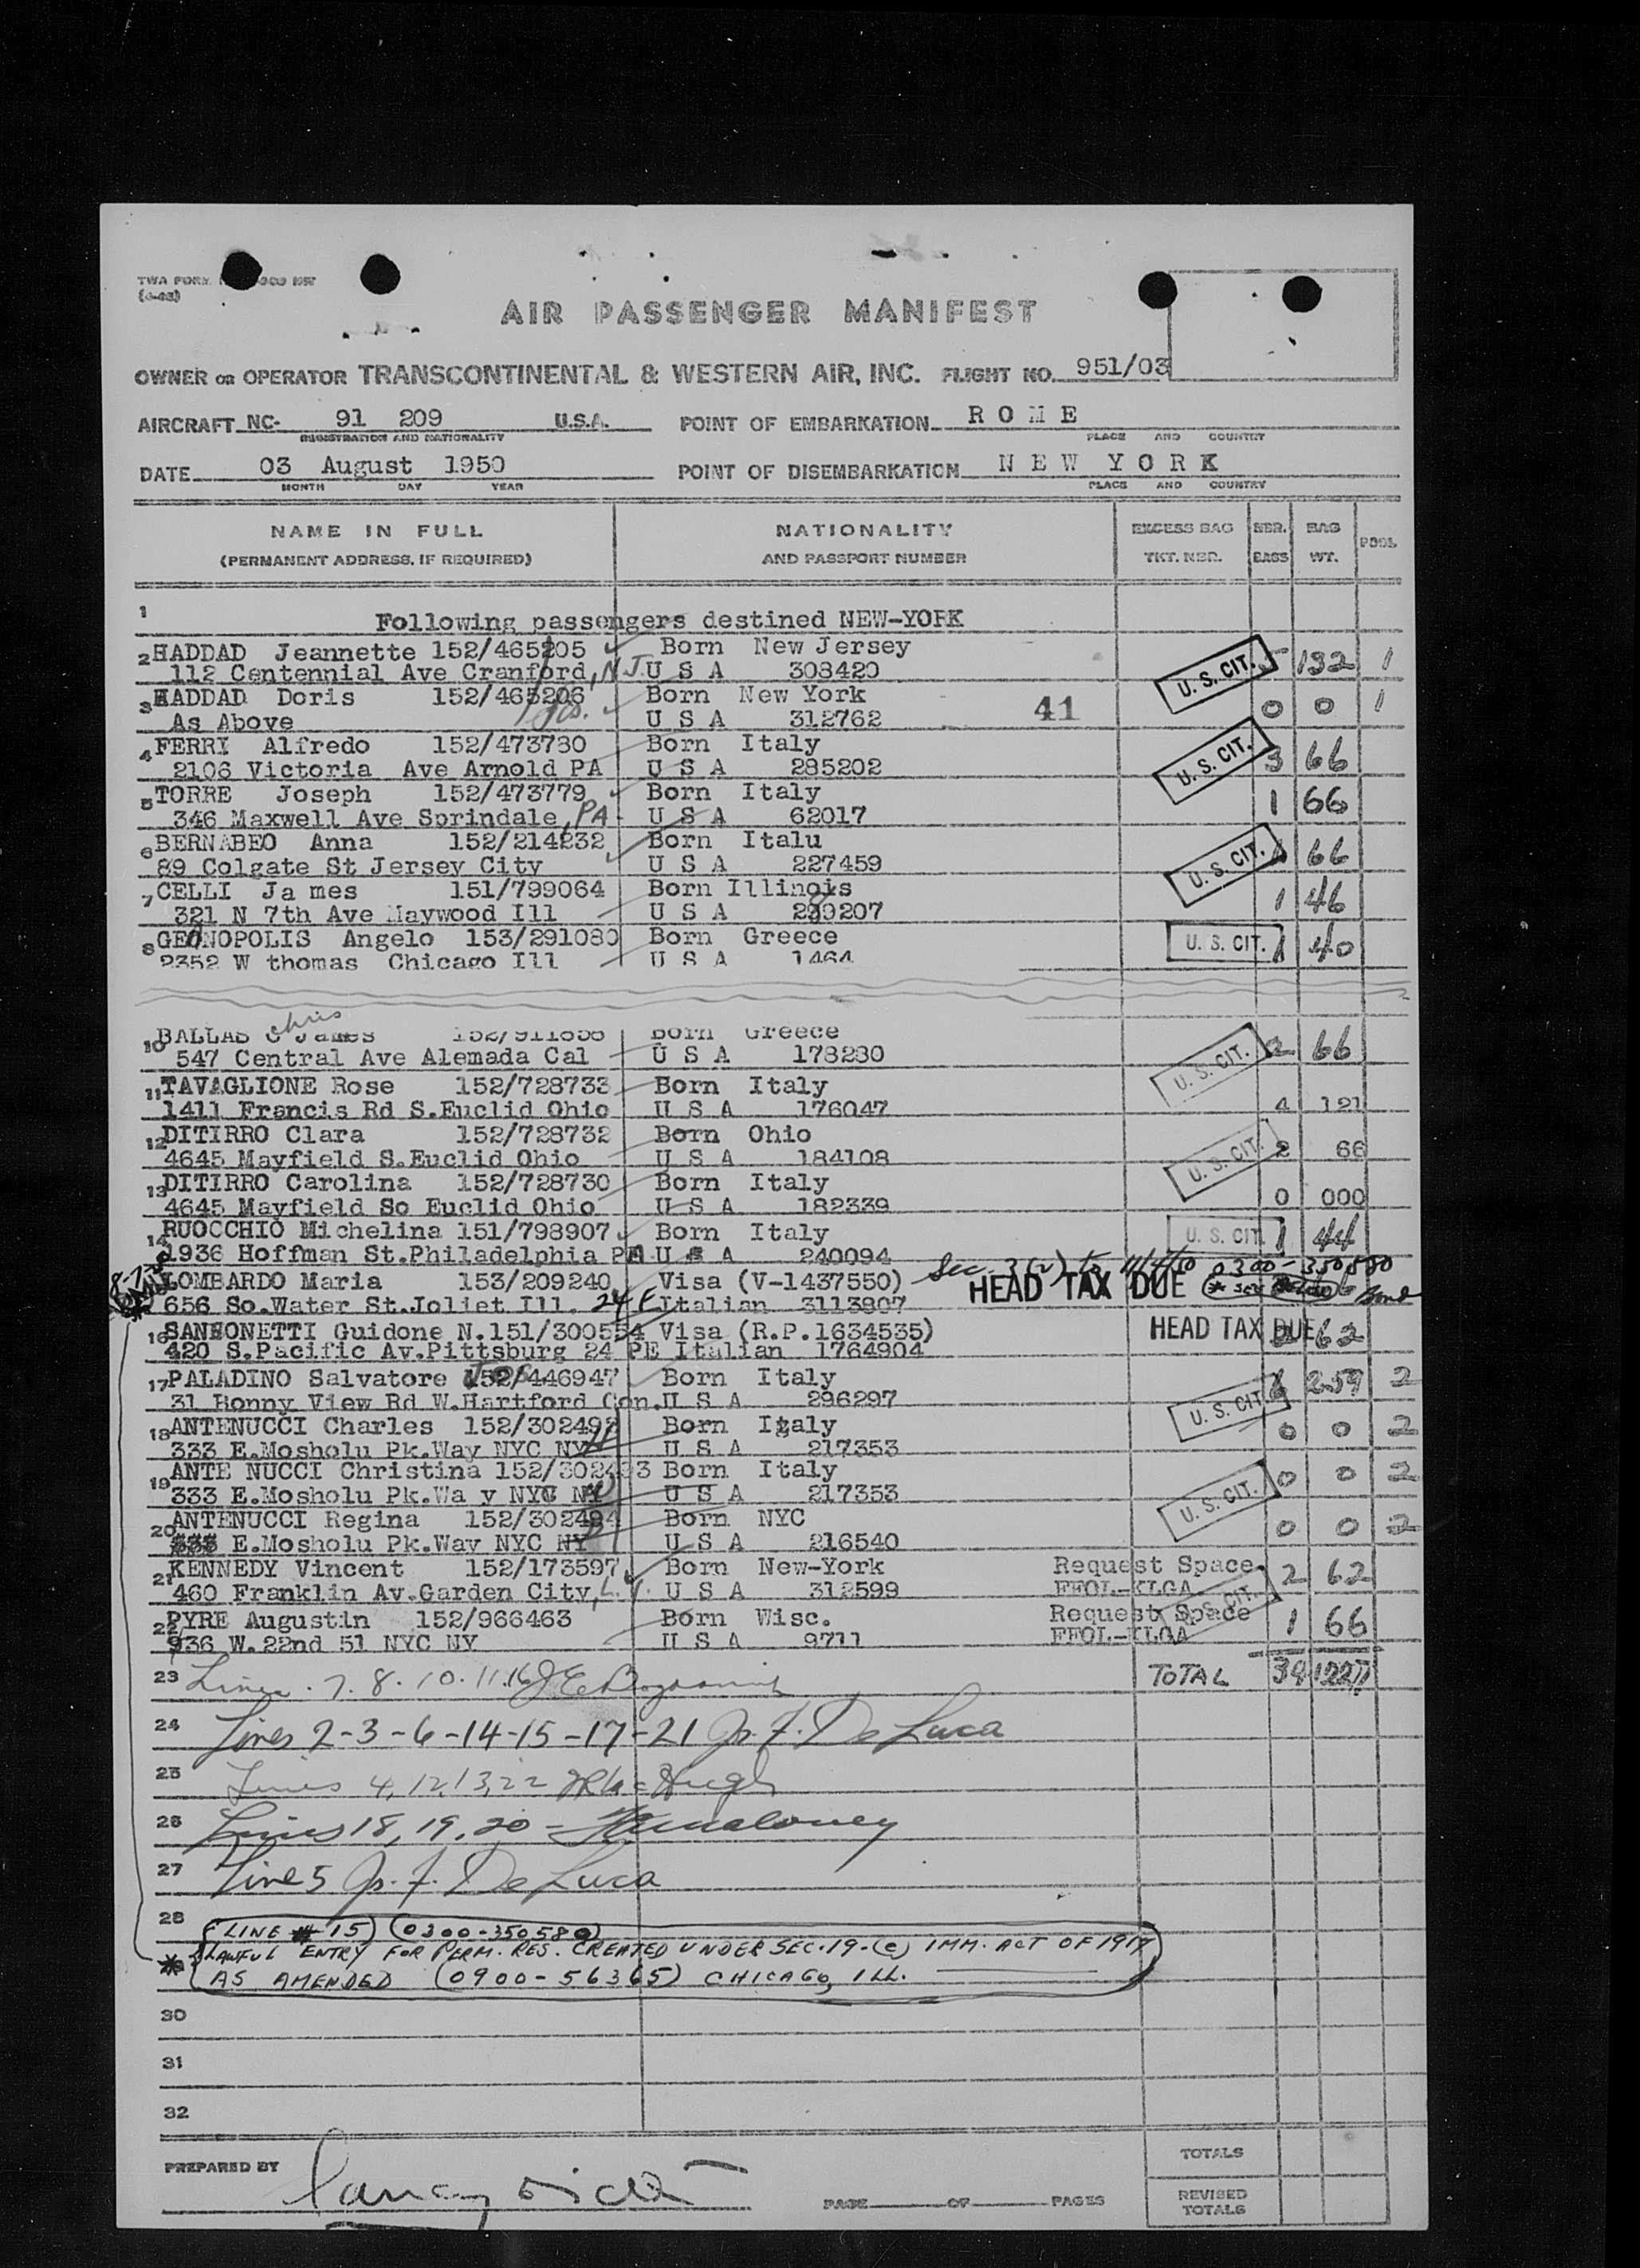 TWA FORM
(4-48)
AIR PASSENGER MANIFEST
OWNER OR OPERATOR TRANSCONTINENTAL & WESTERN AIR, INC. FLIGHT NO. 951/03
AIRCRAFT NC- 91 209 U.S.A. POINT OF EMBARKATION ROME
REGISTRATION AND NATIONALITY PLACE AND COUNTRY
DATE 03 August 1950 POINT OF DISEMBARKATION NEW YORK
MONTH DAY YEAR PLACE AND COUNTRY
NAME IN FULL NATIONALITY EXCESS BAG NBR. BAG POOL
(PERMANENT ADDRESS, IF REQUIRED) AND PASSPORT NUMBER TKT. NBR. BAGS WT.
1 Following passengers destined NEW-YORK
2 HADDAD Jeannette 152/465205 Born New Jersey U. S. CIT. 5 132 1
112 Centennial Ave Cranford, N.J. U S A 308420
3 HADDAD Doris 152/465206 Born New York 41 0 0 1
As Above U S A 312762
4 FERRI Alfredo 152/473730 Born Italy U. S. CIT. 3 66
2106 Victoria Ave Arnold PA U S A 285202
5 TORRE Joseph 152/473779 Born Italy 1 66
346 Maxwell Ave Sprindale, PA U S A 62017
6 BERNABEO Anna 152/214232 Born Italu U. S. CIT. 66
89 Colgate St Jersey City U S A 227459
7 CELLI Ja mes 151/799064 Born Illinois 1 46
321 N 7th Ave Maywood Ill U S A 289207
8 GEONOPOLIS Angelo 153/291080 Born Greece U. S. CIT. 1 40
2352 W thomas Chicago Ill U S A 1464
10 BALLAS Chris James Born Greece U. S. CIT. 2 66
547 Central Ave Alemada Cal U S A 178230
11 TAVAGLIONE Rose 152/728733 Born Italy
1411 Francis Rd S.Euclid Ohio U S A 176047 4 121
12 DITIRRO Clara 152/728732 Born Ohio U. S. CIT. 2 66
4645 Mayfield S.Euclid Ohio U S A 184108
13 DITIRRO Carolina 152/728730 Born Italy 0 000
4645 Mayfield So Euclid Ohio U S A 182339
14 RUOCCHIO Michelina 151/798907 Born Italy U. S. CIT. 1 44
1936 Hoffman St.Philadelphia PA U S A 240094
15 LOMBARDO Maria 153/209240 Visa (V-1437550) HEAD TAX DUE 0300-350580
656 So.Water St.Joliet Ill. 24 F Italian 3113807
16 SANSONETTI Guidone N.151/300554 Visa (R.P.1634535) HEAD TAX DUE 62
420 S.Pacific Av.Pittsburg 24 PE Italian 1764904
17 PALADINO Salvatore 152/446947 Born Italy U. S. CIT. 259 2
31 Bonny View Rd W.Hartford Con. U S A 296297
18 ANTENUCCI Charles 152/302492 Born Italy 0 0 2
333 E.Mosholu Pk.Way NYC NY U S A 217353
19 ANTE NUCCI Christina 152/302493 Born Italy U. S. CIT. 0 0 2
333 E.Mosholu Pk.Wa y NYC NY U S A 217353
20 ANTENUCCI Regina 152/302494 Born NYC 0 0 2
333 E.Mosholu Pk.Way NYC NY U S A 216540
21 KENNEDY Vincent 152/173597 Born New-York Request Space 2 62
460 Franklin Av.Garden City, L.I. U S A 312599 FFOL-KLGA U. S. CIT.
22 PYRE Augustin 152/966463 Born Wisc. Request Space 1 66
936 W.22nd 51 NYC NY U S A 9711 FFOL-KLGA
23 Lines 7. 8. 10. 11. 16 TOTAL 39
24 Lines 2-3-6-14-15-17-21 Jos. F. De Luca
25 Lines 4, 12, 13, 22
26 Lines 18, 19, 20 - Maloney
27 Line 5 Jos. F. De Luca
28 (LINE # 15) (0300-350580)
* LAWFUL ENTRY FOR PERM. RES. CREATED UNDER SEC. 19-(c) IMM. ACT OF 1917
AS AMENDED (0900-56365) CHICAGO, ILL.
30
31
32
PREPARED BY PAGE OF PAGES TOTALS
REVISED TOTALS